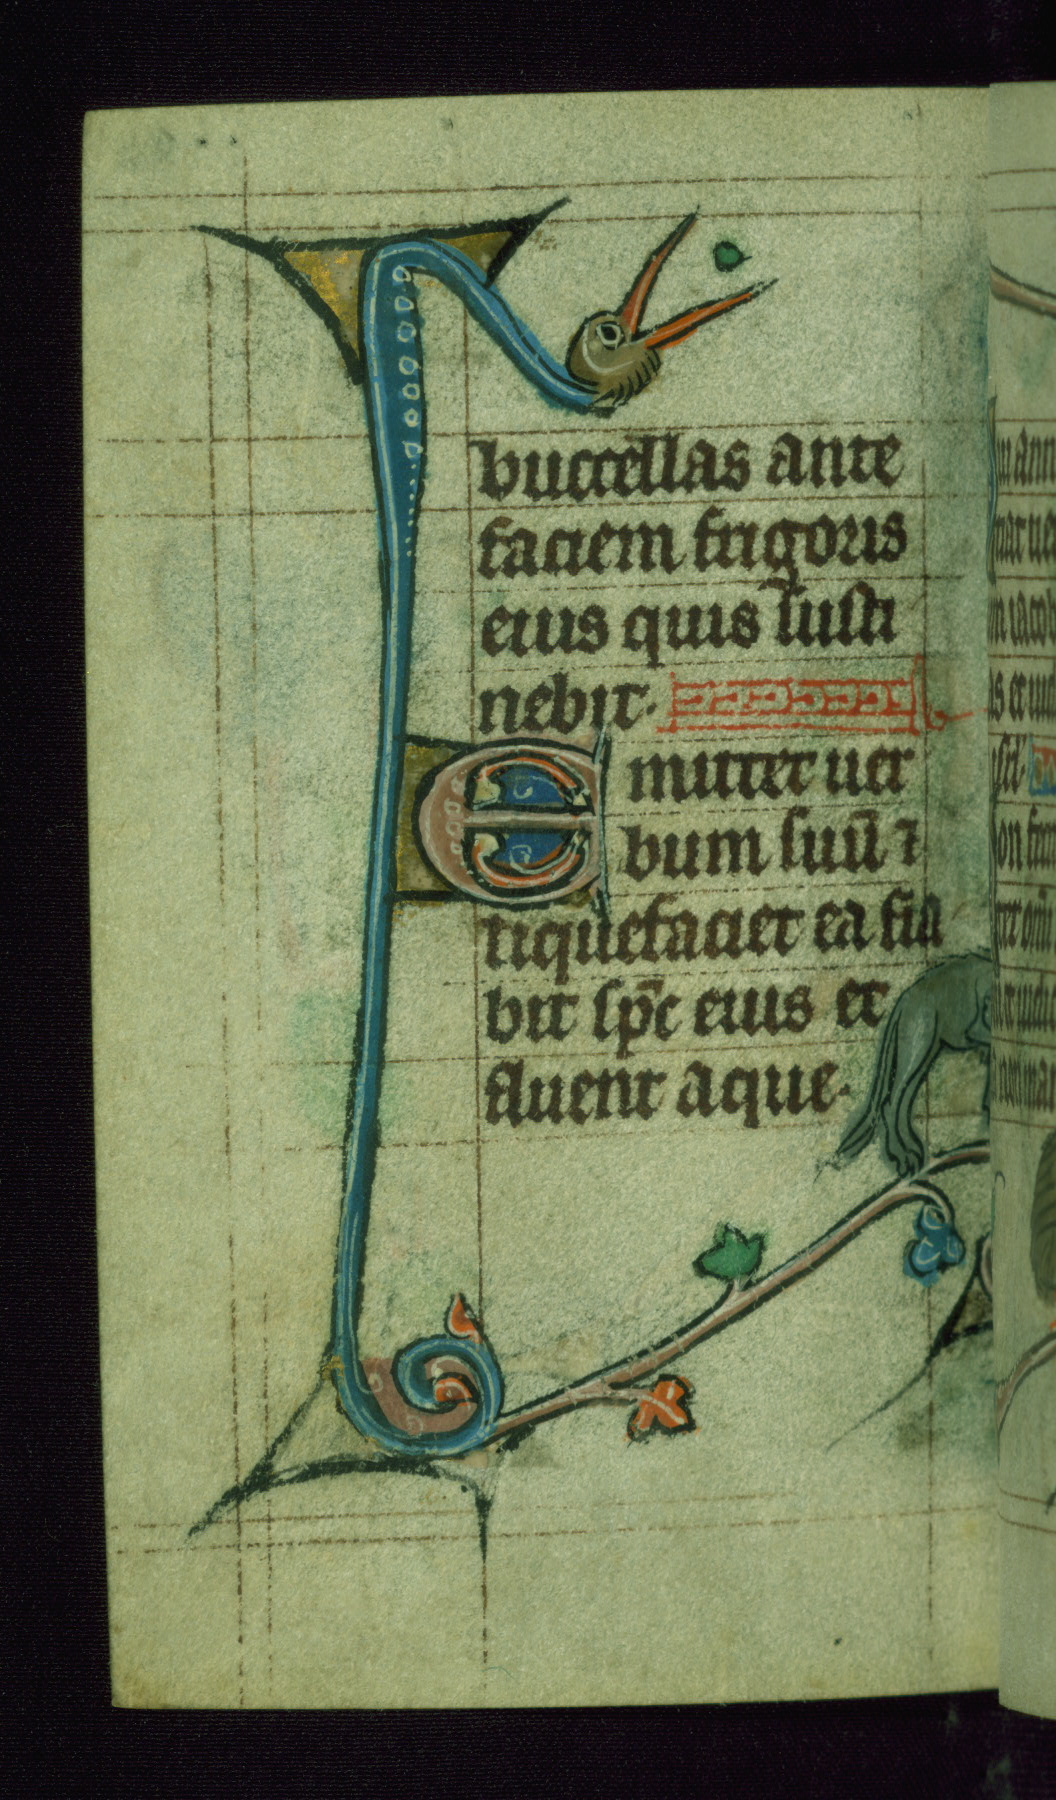 buccellas ante
faciem frigoris
eius quis susti
nebit.
Emittet uer
bum suū ⁊
liquefaciet ea fla
bit sp̄c eius et
fluent aque.